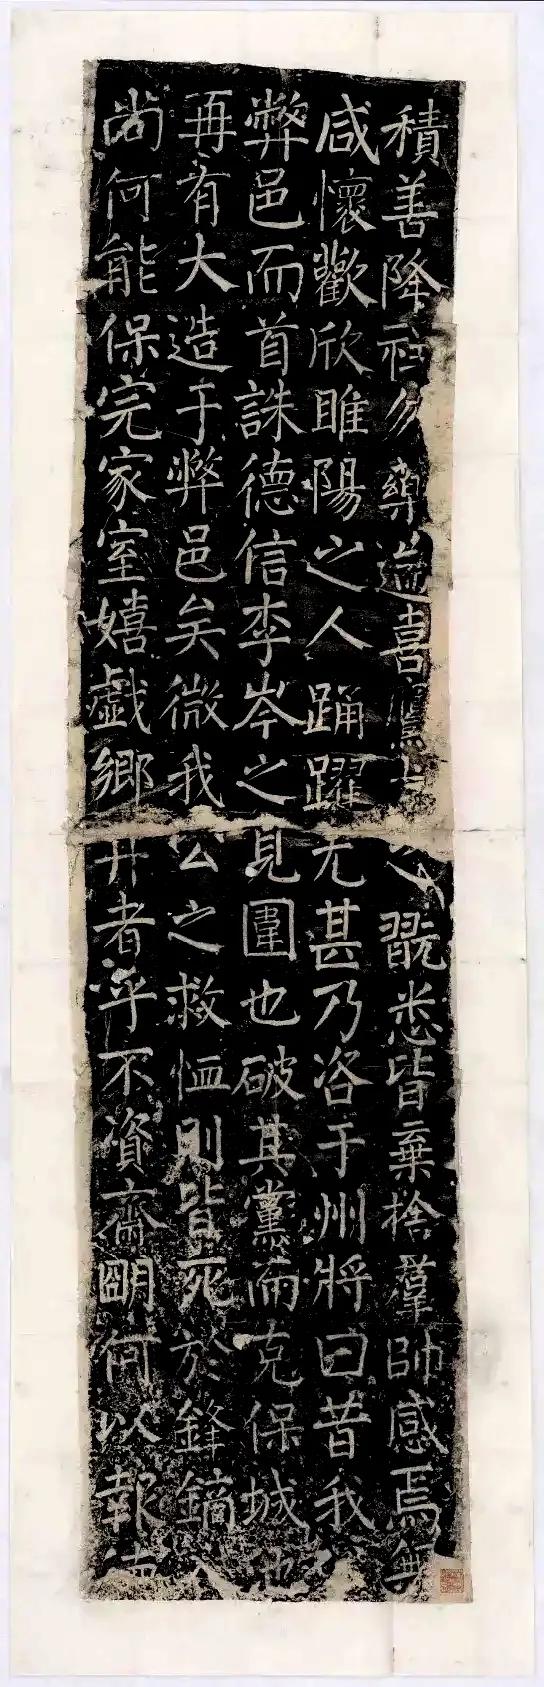 積善降祉勿藥遄喜鷹之翫悉皆棄捨羣帥感焉無
咸懷歡欣睢陽之人踊躍尤甚乃咨于州將曰昔我
弊邑而首誅德信李岑之見圍也破其黨而克保城池
再有大造于弊邑矣微我公之救恤則皆死於鋒鏑
尚何能保完家室嬉戲鄉井者乎不資齋明何以報德